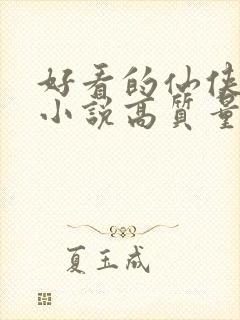 好看的仙侠
小説高質量
夏玉成